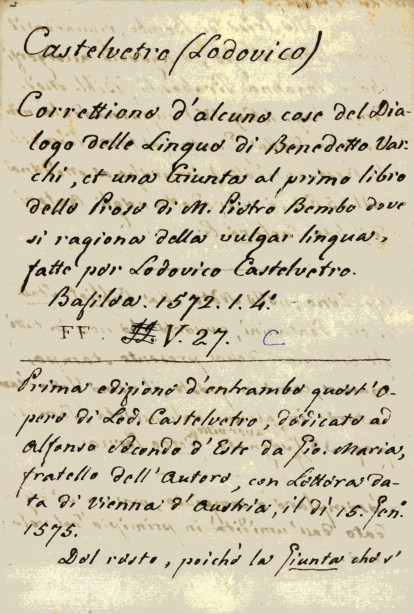 Castelvetro (Lodovico)
Correttione d'alcune cose del Dia-
logo delle Lingue di Benedetto Var-
chi, et una Giunta al primo libro
delle Prose di M. Pietro Bembo dove
si ragiona della vulgar lingua,
fatte per Lodovico Castelvetro.
Basilea. 1572. 1. 4.º
FF. V. 27. C
Prima edizione d'entrambe quest'O-
pere di Lod. Castelvetro, dedicate ad
Alfonso Secondo d'Este da Gio. Maria,
fratello dell'Autore, con Lettera da-
ta di Vienna d'Austria, il dì 15. Gen.º
1575.
Del resto, poichè la Giunta che s'